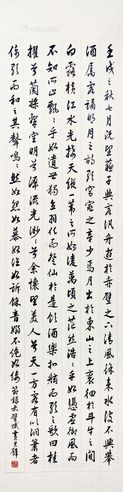 壬戌之秋七月既望蘇子與客泛舟遊於赤壁之下清風徐來水波不興舉
酒屬客誦明月之詩歌窈窕之章少焉月出於東山之上徘徊於斗牛之間
白露橫江水光接天縱一葦之所如凌萬頃之茫然浩浩乎如憑虛御風而
不知所止飄飄乎如遺世獨立羽化而登仙於是飲酒樂甚扣舷而歌之歌曰桂
櫂兮蘭槳擊空明兮泝流光渺渺兮余懷望美人兮天一方客有吹洞簫者
倚歌而和之其聲嗚嗚然如怨如慕如泣如訴餘音嫋嫋不絕如縷